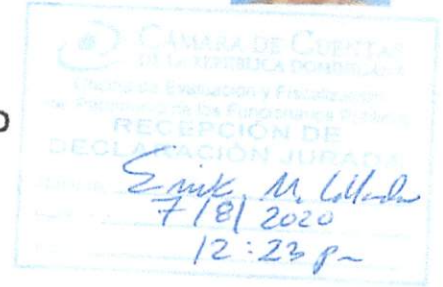 CÁMARA DE CUENTAS
DE LA REPÚBLICA DOMINICANA
Oficina de Evaluación y Fiscalización
de Patrimonio de los Funcionarios Públicos
O
RECEPCIÓN DE
DECLARACIÓN JURADA
Erik M.
7/8/2020
12:23 p